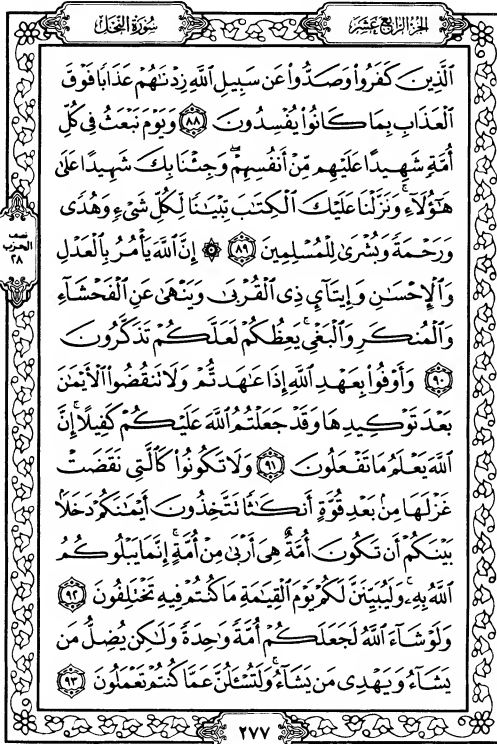 الجزء الرابع عشر
سورة النحل
الَّذِينَ كَفَرُوا۟ وَصَدُّوا۟ عَن سَبِيلِ اللَّهِ زِدْنَٰهُمْ عَذَابًا فَوْقَ
الْعَذَابِ بِمَا كَانُوا۟ يُفْسِدُونَ ٨٨ وَيَوْمَ نَبْعَثُ فِى كُلِّ
أُمَّةٍ شَهِيدًا عَلَيْهِم مِّنْ أَنفُسِهِمْ ۖ وَجِئْنَا بِكَ شَهِيدًا عَلَىٰ
هَٰٓؤُلَآءِ ۚ وَنَزَّلْنَا عَلَيْكَ الْكِتَٰبَ تِبْيَٰنًا لِّكُلِّ شَىْءٍ وَهُدًى
وَرَحْمَةً وَبُشْرَىٰ لِلْمُسْلِمِينَ ٨٩ ۞ إِنَّ اللَّهَ يَأْمُرُ بِالْعَدْلِ
وَالْإِحْسَٰنِ وَإِيتَآئِ ذِى الْقُرْبَىٰ وَيَنْهَىٰ عَنِ الْفَحْشَآءِ
وَالْمُنكَرِ وَالْبَغْىِ ۚ يَعِظُكُمْ لَعَلَّكُمْ تَذَكَّرُونَ
٩٠ وَأَوْفُوا۟ بِعَهْدِ اللَّهِ إِذَا عَٰهَدتُّمْ وَلَا تَنقُضُوا۟ الْأَيْمَٰنَ
بَعْدَ تَوْكِيدِهَا وَقَدْ جَعَلْتُمُ اللَّهَ عَلَيْكُمْ كَفِيلًا ۚ إِنَّ
اللَّهَ يَعْلَمُ مَا تَفْعَلُونَ ٩١ وَلَا تَكُونُوا۟ كَالَّتِى نَقَضَتْ
غَزْلَهَا مِنۢ بَعْدِ قُوَّةٍ أَنكَٰثًا تَتَّخِذُونَ أَيْمَٰنَكُمْ دَخَلًۢا
بَيْنَكُمْ أَن تَكُونَ أُمَّةٌ هِىَ أَرْبَىٰ مِنْ أُمَّةٍ ۚ إِنَّمَا يَبْلُوكُمُ
اللَّهُ بِهِۦ ۚ وَلَيُبَيِّنَنَّ لَكُمْ يَوْمَ الْقِيَٰمَةِ مَا كُنتُمْ فِيهِ تَخْتَلِفُونَ ٩٢
وَلَوْ شَآءَ اللَّهُ لَجَعَلَكُمْ أُمَّةً وَٰحِدَةً وَلَٰكِن يُضِلُّ مَن
يَشَآءُ وَيَهْدِى مَن يَشَآءُ ۚ وَلَتُسْـَٔلُنَّ عَمَّا كُنتُمْ تَعْمَلُونَ ٩٣
نصف
الحزب
٢٨
٢٧٧